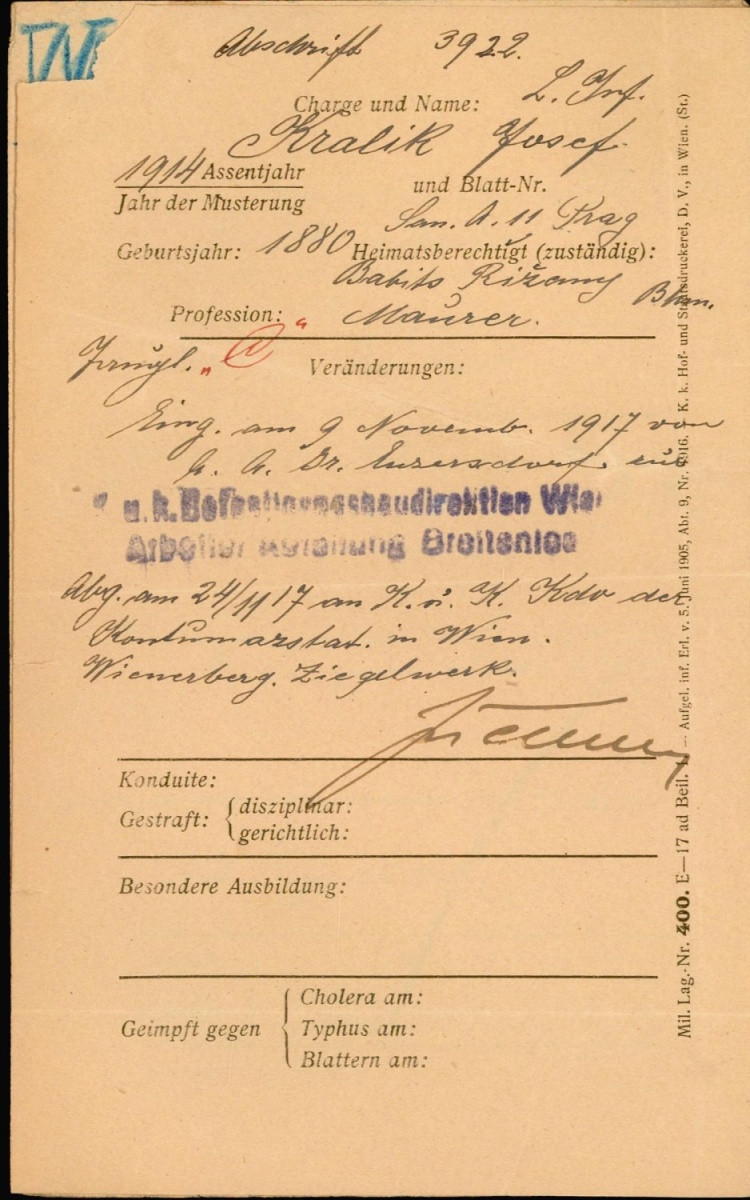 Abschrift 3922.
Charge und Name: L. Inf.
Kralik Josef
1914 Assentjahr
Jahr der Musterung
und Blatt-Nr.
San. A. 11 Prag
Geburtsjahr: 1880 Heimatsberechtigt (zuständig):
Babits Rižany Bhm.
Profession: Maurer.
"C" Veränderungen:
Eing. am 9 Novemb. 1917 von
Dr. Enzersdorf zur
K. u. k. Befestigungsbaudirektion Wien
Arbeiter Abteilung Breitenlee
Abg. am 24/11 17 an K. u. K. Kdo der
Kontumazstat. in Wien.
Wienerberg. Ziegelwerk.
Konduite:
Gestraft: disziplinar:
gerichtlich:
Besondere Ausbildung:
Geimpft gegen
Cholera am:
Typhus am:
Blattern am:
Mil. Lag.-Nr. 400. E—17 ad Beil. 1 — Aufgel. inf. Erl. v. 5. Juni 1905, Abt. 9, Nr. 1916. — K. k. Hof- und Staatsdruckerei, D. V., in Wien. (St.)